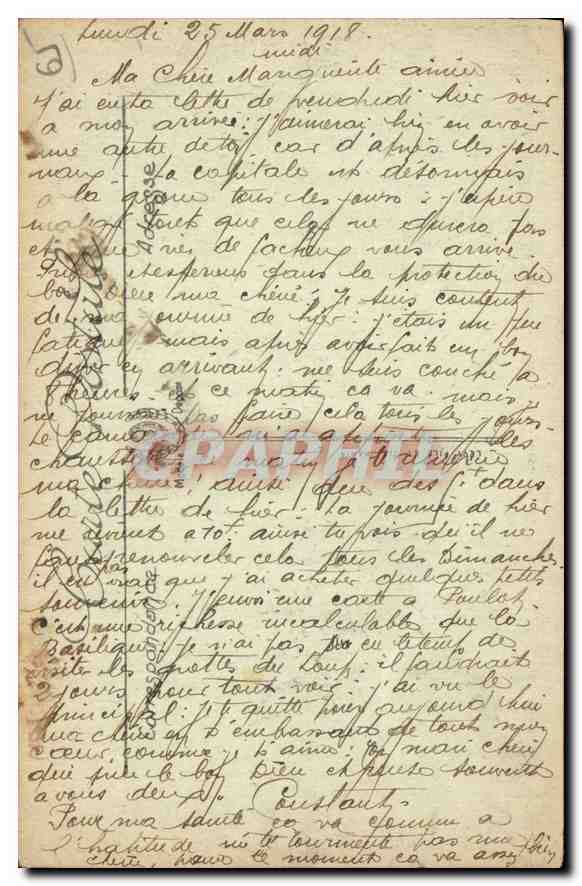 Lundi 25 Mars 1918.
midi
Ma Chère Marguerite aimée
J'ai eu ta lettre de vendredi hier soir
a mon arrivée: j'aimerai bien en avoir
une autre de toi car d'après les jour-
naux la capitale est désormais
a la gueule tous les jours: j'espère
malgré tout que cela ne durera pas
et que rien de facheux vous arrive.
Prie et espérons dans la protection du
bon Dieu ma chérie! Je suis content
de ma journée de hier: j'étais un peu
fatigué mais après avoir fait un bon
diner en arrivant: me suis couché a
8 heures. et ce matin ça va. mais
ne pourrais pas faire cela tous les jours.
Le cama m'a apporté les
chaussettes matin je te remercie
ma chérie! ainsi que des 5f dans
la lettre de hier. La journée de hier
me revient a 10f. ainsi tu vois qu'il ne
faut pas renouveler cela tous les Dimanches.
il est vrai que j'ai acheter quelques petits
souvenirs. J'envoi une carte a Paulot.
C'est une richesse incalculable que la
Basilique. Je n'ai pas eu le temps de
visiter les grottes du Loup: il faudrait
2 jours pour tout voir: j'ai vu le
principal. Je te quitte pour aujourd'hui
ma chérie en t'embrassant de tout mon
cœur comme je t'aime. Ton mari chéri
qui prie le bon Dieu et pense souvent
a vous deux. Constant.
Pour ma santé ça va comme a
l'habitude ne te tourmente pas ma
chérie, pour le moment ça va assez bien
Carte Postale
Correspondance
Adresse
CPAPHIL